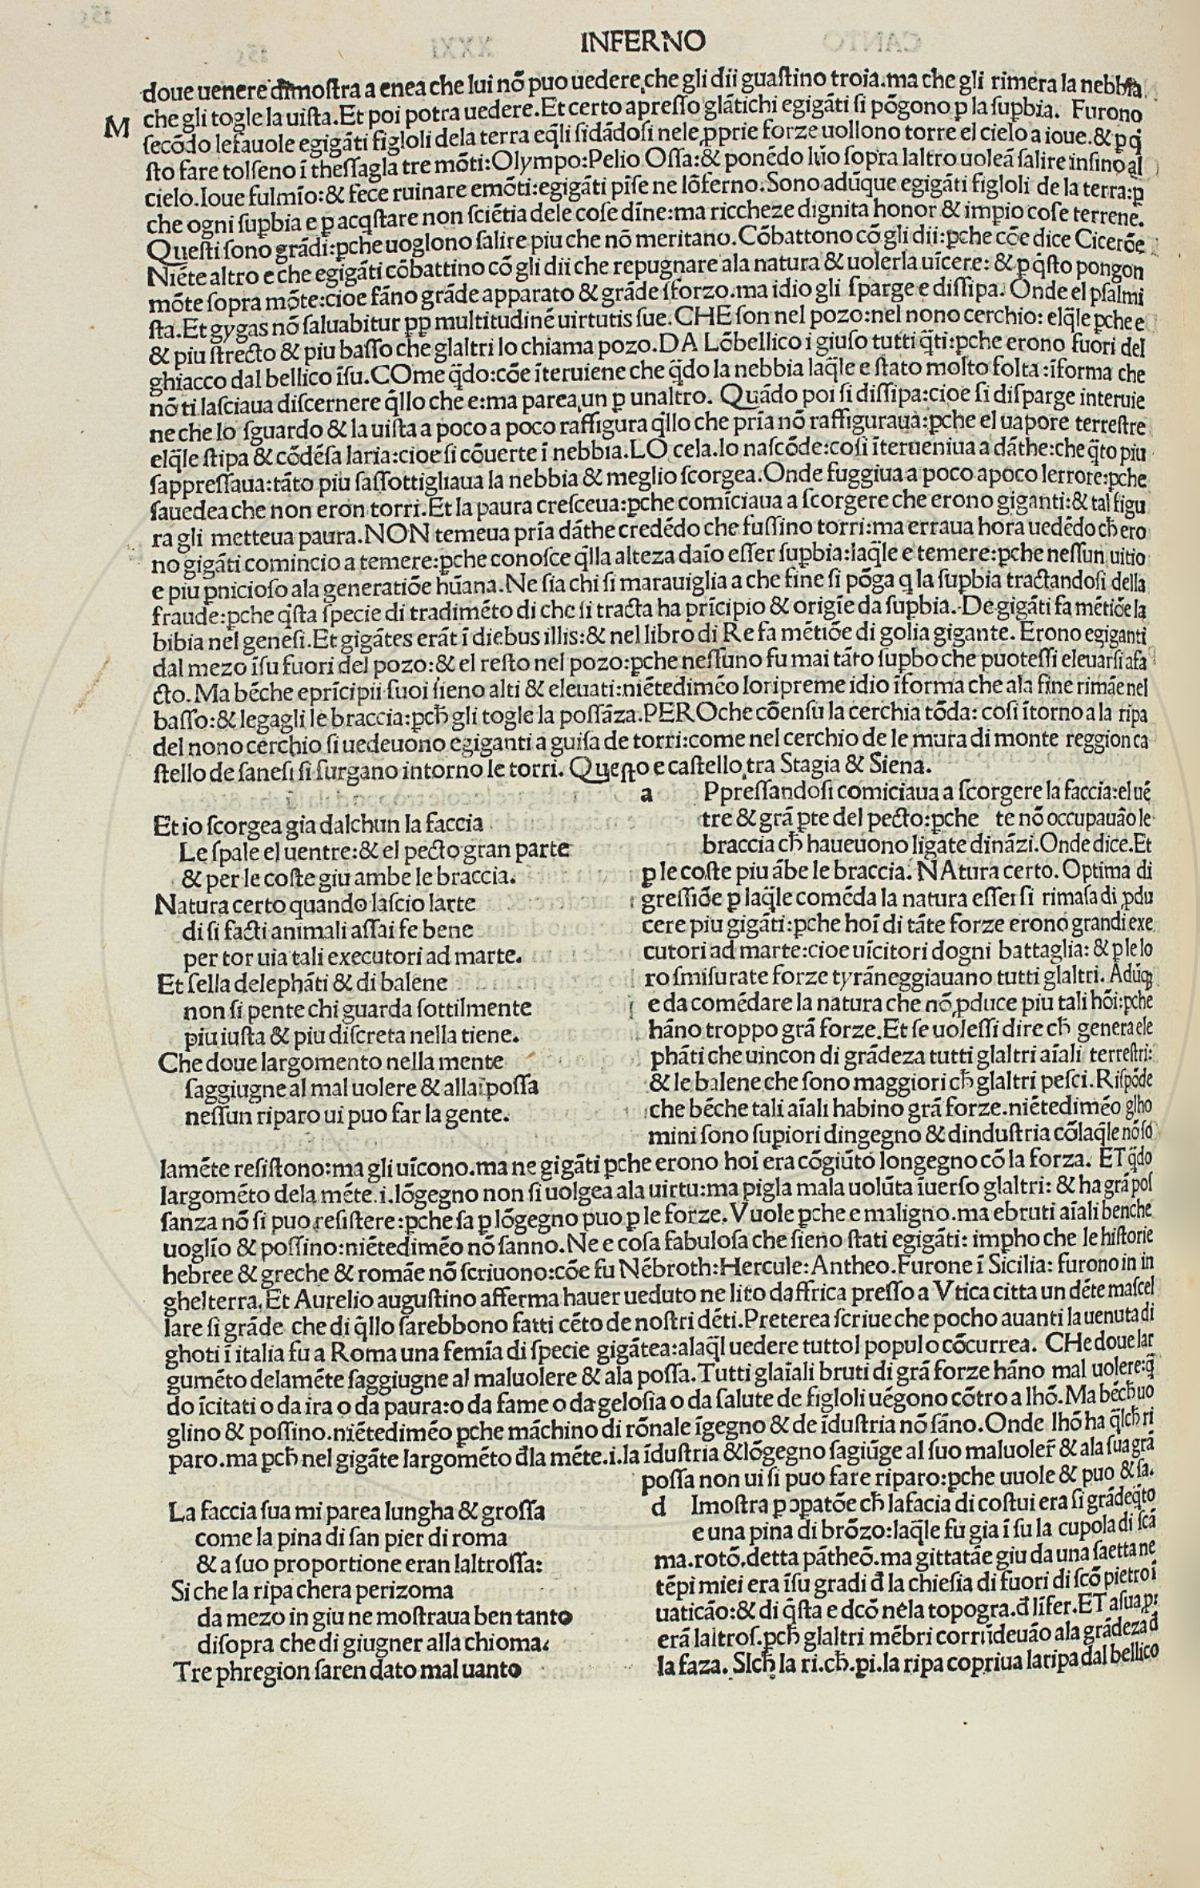 INFERNO
doue uenere dimostra a enea che lui nō puo uedere che gli dii guastino troia.ma che gli rimera la nebbia
M
che gli togle la uista.Et poi potra uedere.Et certo apresso glātichi egigāti si pōgono ꝑ la suꝑbia. Furono
secōdo lefauole egigāti figloli dela terra eq̄li fidādosi nele ꝓprie forze uollono torre el cielo a ioue.& ꝑ q̄
sto fare tolseno ī thessagla tre mōti:Olympo:Pelio Ossa:& ponēdo luo sopra laltro uoleā salire insino al
cielo.Ioue fulmīo:& fece ruinare emōti:egigāti pīse ne lōferno.Sono adūque egigāti figloli de la terra:ꝑ
che ogni suꝑbia e ꝑ acq̄stare non sciētia dele cose dīne:ma riccheze dignita honor & impio cose terrene.
Questi sono grādi:ꝑche uoglono salire piu che nō meritano.Cōbattono cō gli dii:ꝑche cōe dice Cicerōe
Niēte altro e che egigāti cōbattino cō gli dii che repugnare ala natura & uolerla uīcere: & ꝑ q̄sto pongon
mōte sopra mōte:cioe fāno grāde apparato & grāde sforzo.ma idio gli sparge e dissipa. Onde el psalmi
sta.Et gygas nō saluabitur ꝓꝑ multitudinē uirtutis sue.CHE son nel pozo:nel nono cerchio: elq̄le ꝑche e
& piu strecto & piu basso che glaltri lo chiama pozo.DA Lōbellico i giuso tutti q̄ti:ꝑche erono fuori del
ghiacco dal bellico īsu.COme q̄do:cōe īteruiene che q̄do la nebbia laq̄le e stato molto folta:iforma che
nō ti lasciaua discernere q̄llo che e:ma parea un ꝑ unaltro. Quādo poi si dissipa:cioe si disparge interuie
ne che lo sguardo & la uista a poco a poco raffigura q̄llo che pria nō raffiguraua:ꝑche el uapore terrestre
elq̄le stipa & cōdēsa laria:cioe si cōuerte ī nebbia.LO cela.lo nascōde:cosi īterueniua a dāthe:che q̄to piu
sappressaua:tāto piu sassottigliaua la nebbia & meglio scorgea.Onde fuggiua a poco apoco lerrore:ꝑche
sauedea che non eron torri.Et la paura cresceua:ꝑche comīciaua a scorgere che erono giganti:& tal figu
ra gli metteua paura.NON temeua pria dāthe credēdo che fussino torri:ma erraua hora uedēdo cħ ero
no gigāti comincio a temere:ꝑche conosce q̄lla alteza daio esser suꝑbia:laq̄le e temere:ꝑche nessun uitio
e piu ꝑnicioso ala generatiōe hūana.Ne sia chi si marauiglia a che fine si pōga q̄ la suꝑbia tractandosi della
fraude:ꝑche q̄sta specie di tradimēto di che si tracta ha prīcipio & origie da suꝑbia. De gigāti fa mētiōe la
bibia nel genesi.Et gigātes erāt ī diebus illis:& nel libro di Re fa mētiōe di golia gigante. Erono egiganti
dal mezo īsu fuori del pozo:& el resto nel pozo:ꝑche nessuno fu mai tāto suꝑbo che puotessi eleuarsi afa
cto.Ma bēche eprīcipii suoi sieno alti & eleuati:niētedimēo loripreme idio īforma che ala fine rimāe nel
basso:& legagli le braccia:ꝑcħ gli togle la possāza.PEROche cōensu la cerchia tōda: cosi ītorno a la ripa
del nono cerchio si uedeuono egiganti a guisa de torri:come nel cerchio de le mura di monte reggion ca
stello de sanesi si surgano intorno le torri. Questo e castello tra Stagia & Siena.
Et io scorgea gia dalchun la faccia
Le spale el uentre:& el pecto gran parte
& per le coste giu ambe le braccia.
Natura certo quando lascio larte
di si facti animali assai fe bene
per tor uia tali executori ad marte.
Et sella delephāti & di balene
non si pente chi guarda sottilmente
piu iusta & piu discreta nella tiene.
Che doue largomento nella mente
saggiugne al mal uolere & alla possa
nessun riparo ui puo far la gente.
a Ppressandosi comiciaua a scorgere la faccia:el uē
tre & grā ꝑte del pecto:ꝑche te nō occupauāo le
braccia cħ haueuono ligate dināzi.Onde dice.Et
ꝑ le coste piu ābe le braccia. NAtura certo. Optima di
gressiōe ꝑ laq̄le comēda la natura essersi rimasa di ꝓdu
cere piu gigāti:ꝑche hoī di tāte forze erono grandi exe
cutori ad marte:cioe uīcitori dogni battaglia: & ꝑ le lo
ro smisurate forze tyrāneggiauano tutti glaltri. Adūq̄
e da comēdare la natura che nō ꝓduce piu tali hōi:ꝑche
hāno troppo grā forze.Et se uolessi dire cħ genera ele
phāti che uincon di grādeza tutti glaltri aīali terrestri:
& le balene che sono maggiori cħ glaltri pesci.Rispōde
che bēche tali aīali habino grā forze.niētedimēo glho
mini sono supiori dingegno & dindustria cōlaq̄le nō so
lamēte resistono:ma gli uīcono.ma ne gigāti ꝑche erono hoī era cōgiūto longegno cō la forza. ET q̄do
largomēto dela mēte.i.lōgegno non si uolgea ala uirtu:ma pigla mala uolūta iuerso glaltri: & ha grā pos
sanza nō si puo resistere:ꝑche sa ꝑ lōgegno puo ꝑ le forze. Vuole ꝑche e maligno.ma ebruti aīali benche
uoglio & possino:niētedimēo nō sanno.Ne e cosa fabulosa che sieno stati egigāti: impho che le historie
hebree & greche & romāe nō scriuono:cōe fu Nēbroth:Hercule:Antheo.Furone ī Sicilia: furono in in
ghelterra.Et Aurelio augustino afferma hauer ueduto ne lito daffrica presso a Vtica citta un dēte mascel
lare si grāde che di q̄llo sarebbono fatti cēto de nostri dēti.Preterea scriue che pocho auanti la uenuta di
ghoti ī italia fu a Roma una femīa di specie gigātea:alaq̄l uedere tuttol populo cōcurrea. CHe doue lar
gumēto delamēte saggiugne al maluolere & ala possa.Tutti glaīali bruti di grā forze hāno mal uolere:q̄
do īcitati o da ira o da paura:o da fame o da gelosia o da salute de figloli uēgono cōtro a lhō.Ma bēcħ uo
glino & possino.niētedimēo ꝑche māchino di rōnale īgegno & de īdustria nō sāno.Onde lhō ha q̄lcħ ri
paro.ma ꝑcħ nel gigāte largomēto đla mēte.i.la īdustria & lōgegno sagiūge al suo maluoler & ala sua grā
possa non ui si puo fare riparo:ꝑche uuole & puo & sa.
La faccia sua mi parea lungha & grossa
come la pina di san pier di roma
& a suo proportione eran laltrossa:
Si che la ripa chera perizoma
da mezo in giu ne mostraua ben tanto
disopra che di giugner alla chioma.
Tre phregion saren dato mal uanto
d Imostra ꝑ ꝯpatōe cħ lafacia di costui era si grāde q̄to
e una pina di brōzo:laq̄le fu gia ī su la cupola di scā
ma.rotō.detta pātheō.ma gittatāe giu da una saetta ne
tēpi miei era īsu gradi đ la chiesia di fuori di scō pietro ī
uaticāo:& di q̄sta e dcō nela topogra.đ līfer.ET a sua p:
erā laltros.ꝑcħ glaltri mēbri corrisdeuāo ala grādeza đ
la faza. SIcħ la ri.cħ.pi.la ripa copriua la ripa dal bellico